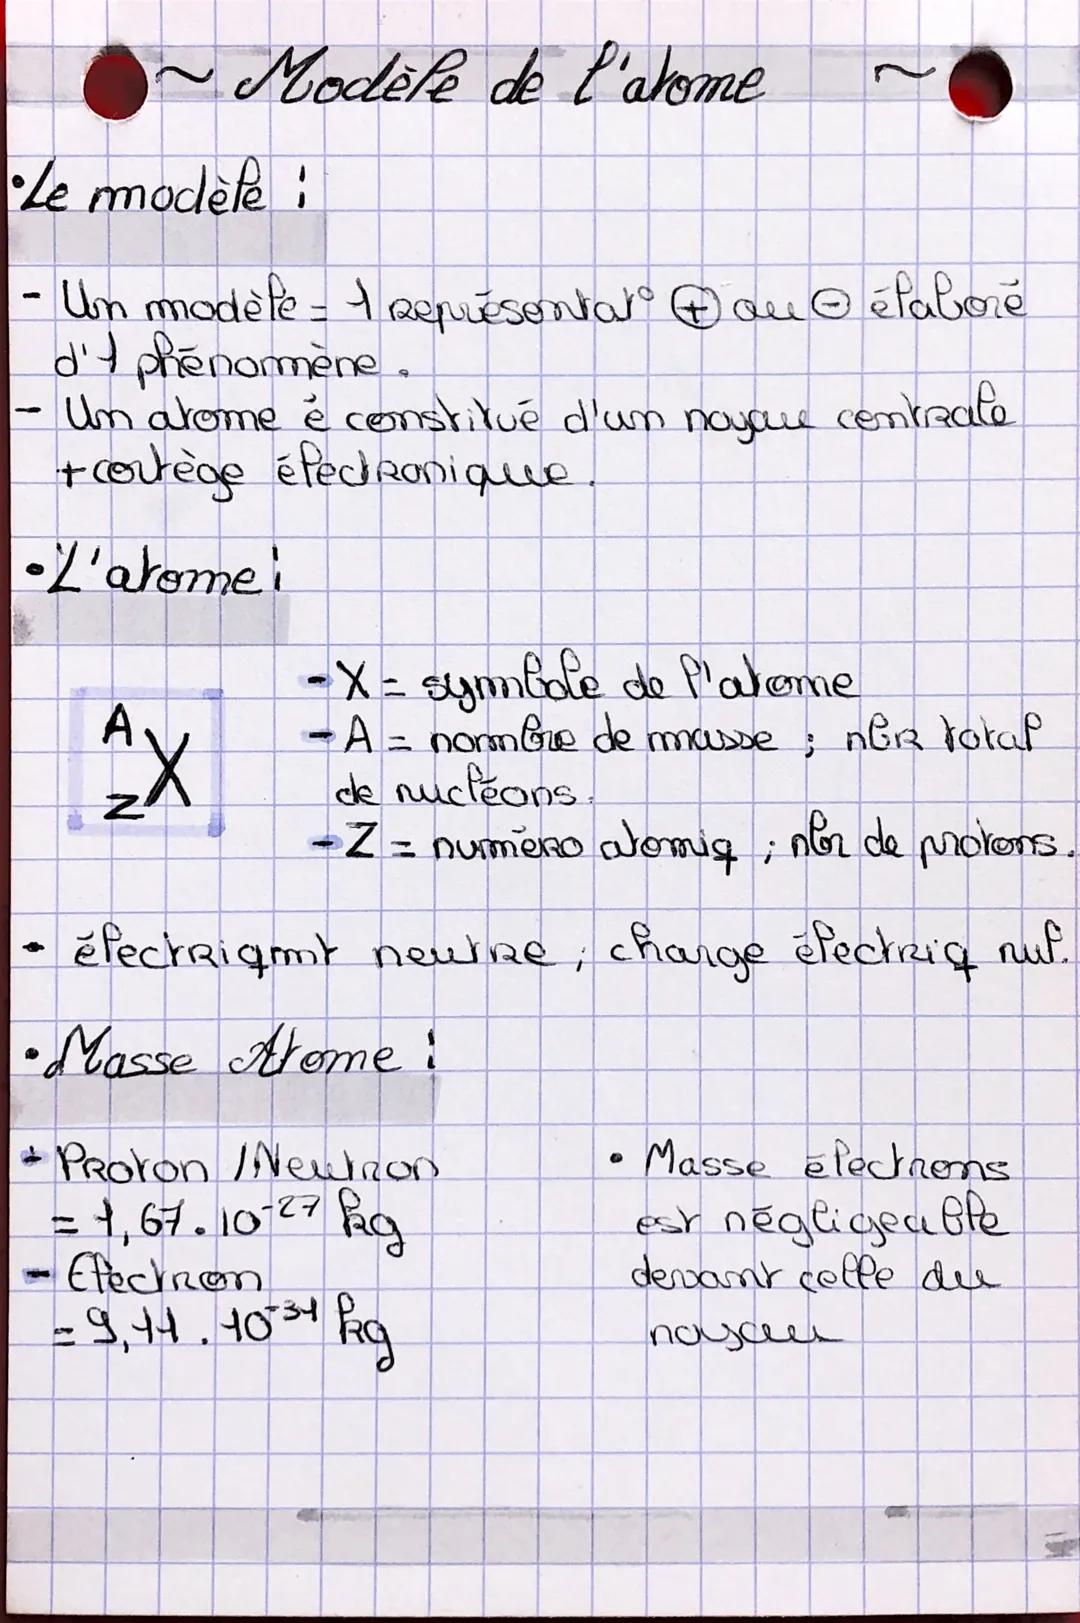 ~ Modèle de l'atome ~
• Le modèle :
- Un modèle = 1 représentat° ⊕ ou ⊖ élaboré
d'1 phénomène.
- Un atome é constitué d'un noyau centrale
+ cortège électronique.
• L'atome :
- X = symbole de l'atome
- A = nombre de masse ; nbr total
de nucléons.
- Z = numéro atomiq ; nbr de protons.
A
Z X
- électriqmt neutre ; charge électriq nul.
• Masse Atome :
+ Proton / Neutron
= 1,67 . 10⁻²⁷ kg
- Electron
= 9,11 . 10⁻³¹ kg
• Masse électrons
est négligeable
devant celle du
noyau